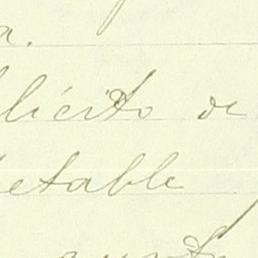 a.
lícito de
etable